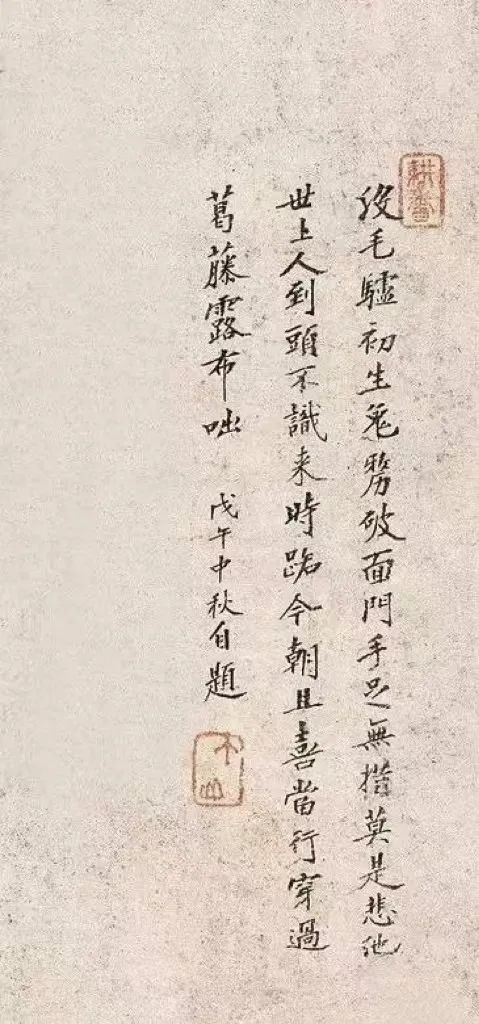 耕香
没毛驢初生兔剺破面門手足無措莫是悲他
世上人到頭不識来時路今朝且喜當行穿過
葛藤露布咄 戊午中秋自題
个山